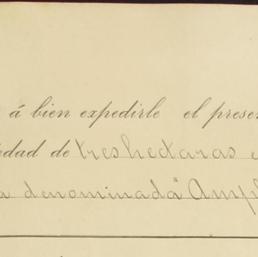 á bien expedirle el prese
edad de tres hectaras e
a denominada "Amp